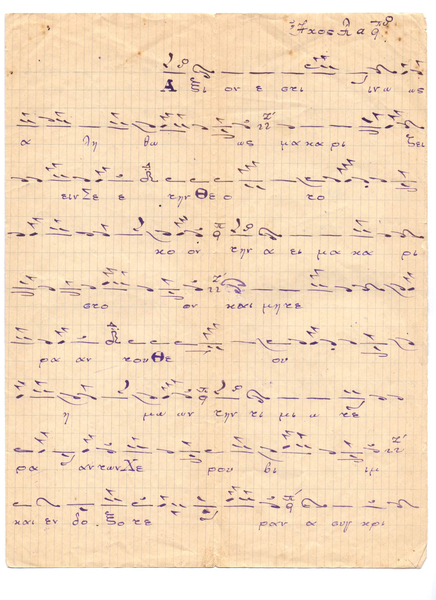 Ἦχος πλ α πα
Α ξι ον ε στι ινω ως
α λη θω ως μα κα ρι ζει
ειν Σε ε την Θε ο το
κο ον την α ει μα κα ρι
στο ον και μη τε
ρα αν του Θε ου
η μω ων την τι μι ω τε
ρα αν των Χε ρου βι ιμ
και εν δο ξο τε ραν α συγ κρι